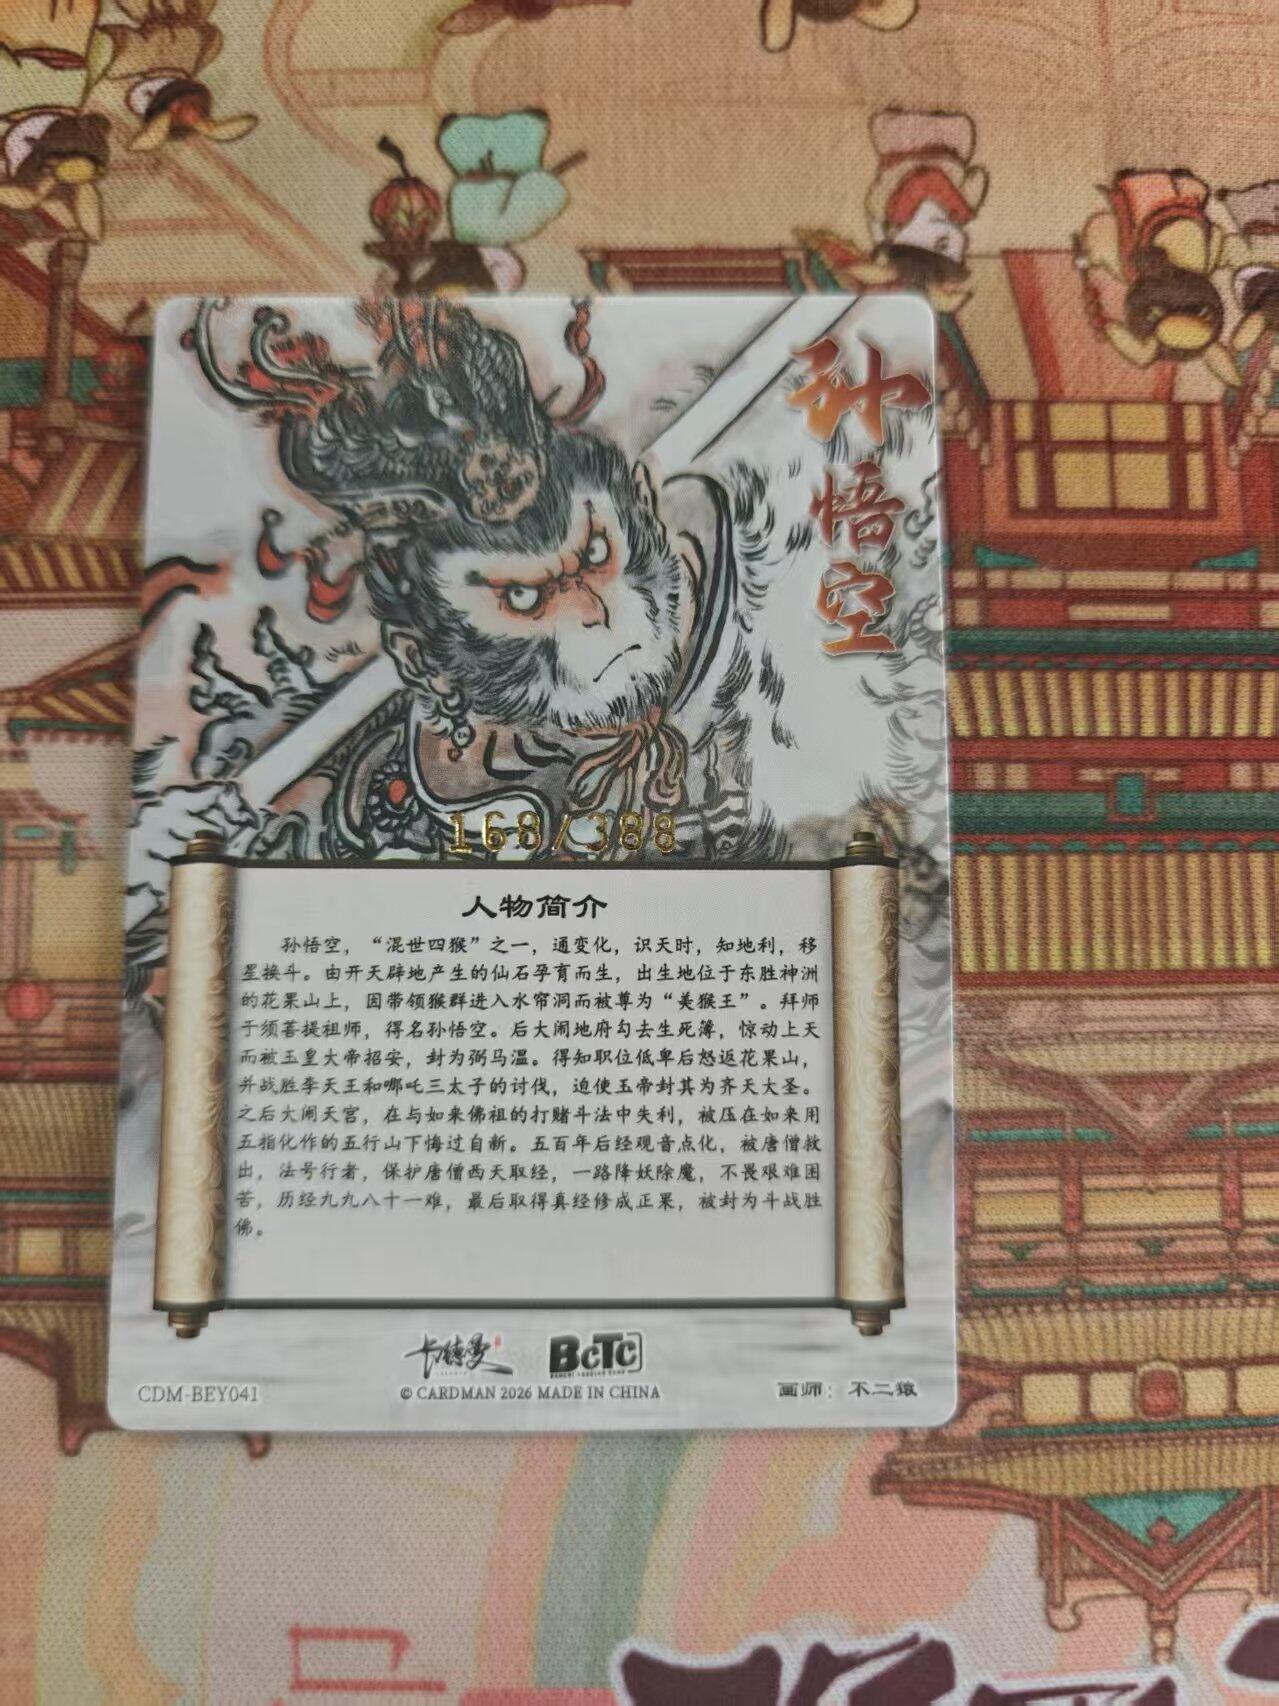 孙悟空
168/388
人物简介
孙悟空，“混世四猴”之一，通变化，识天时，知地利，移
星换斗。由开天辟地产生的仙石孕育而生，出生地位于东胜神洲
的花果山上，因带领猴群进入水帘洞而被尊为“美猴王”。拜师
于须菩提祖师，得名孙悟空。后大闹地府勾去生死簿，惊动上天
而被玉皇大帝招安，封为弼马温。得知职位低卑后怒返花果山，
并战胜李天王和哪吒三太子的讨伐，迫使玉帝封其为齐天大圣。
之后大闹天宫，在与如来佛祖的打赌斗法中失利，被压在如来用
五指化作的五行山下悔过自新。五百年后经观音点化，被唐僧救
出，法号行者，保护唐僧西天取经，一路降妖除魔，不畏艰难困
苦，历经九九八十一难，最后取得真经修成正果，被封为斗战胜
佛。
卡德曼 BCTC
CDM-BEY041
© CARDMAN 2026 MADE IN CHINA
画师：不二猿